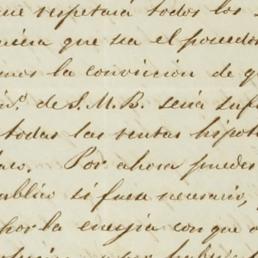 que respetará todos los
quiera que sea el poseedor
mos la conviccion de q
in.º de S. M. B. seria suf
todas las rentas hipot
Por ahora puedes
público si fuese necesario,
por la energía con que